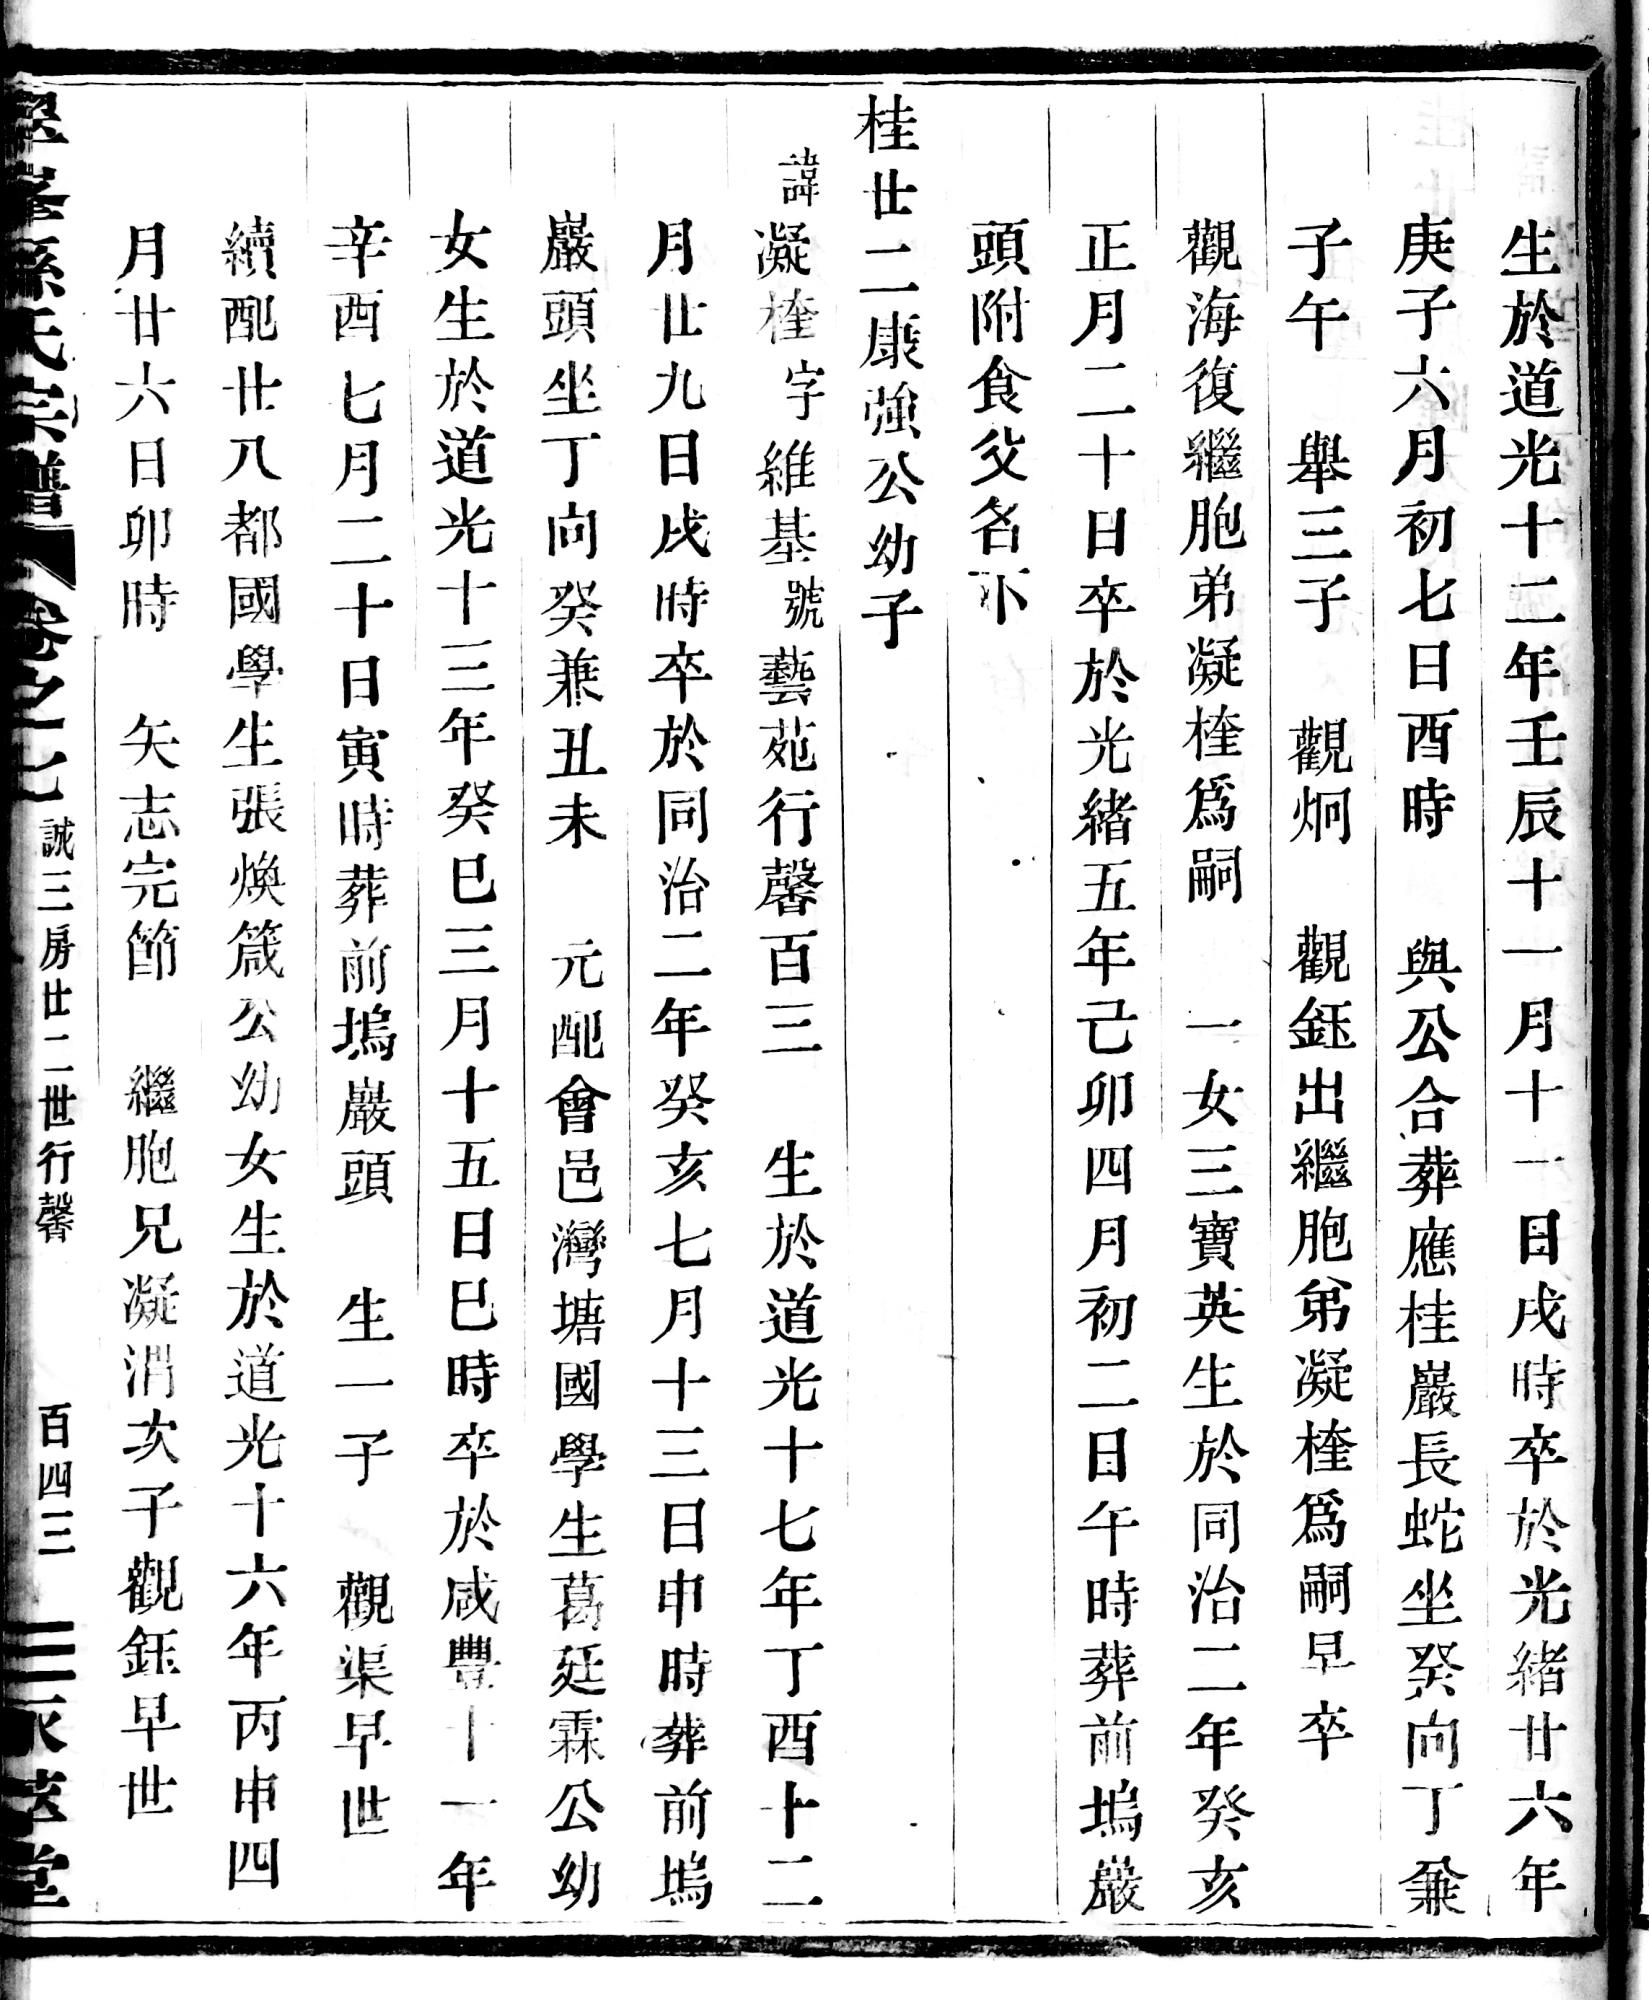 生於道光十二年壬辰十一月十一日戌時卒於光緒廿六年
庚子六月初七日酉時　與公合葬應桂巖長蛇坐癸向丁兼
子午　舉三子　觀炯　觀鈺出繼胞弟凝㮘爲嗣早卒
觀海復繼胞弟凝㮘爲嗣　一女三寶英生於同治二年癸亥
正月二十日卒於光緒五年己卯四月初二日午時葬前塢巖
頭附食父名下
桂廿二康強公幼子
諱凝㮘字維基號藝苑行馨百三　生於道光十七年丁酉十二
月廿九日戌時卒於同治二年癸亥七月十三日申時葬前塢
巖頭坐丁向癸兼丑未　元配會邑灣塘國學生葛廷霖公幼
女生於道光十三年癸巳三月十五日巳時卒於咸豐十一年
辛酉七月二十日寅時葬前塢巖頭　生一子　觀渠早世
續配廿八都國學生張煥箴公幼女生於道光十六年丙申四
月廿六日卯時　矢志完節　繼胞兄凝涓次子觀鈺早世
孫氏宗譜　卷之七　誠三房廿二世行馨　百四三　永萃堂